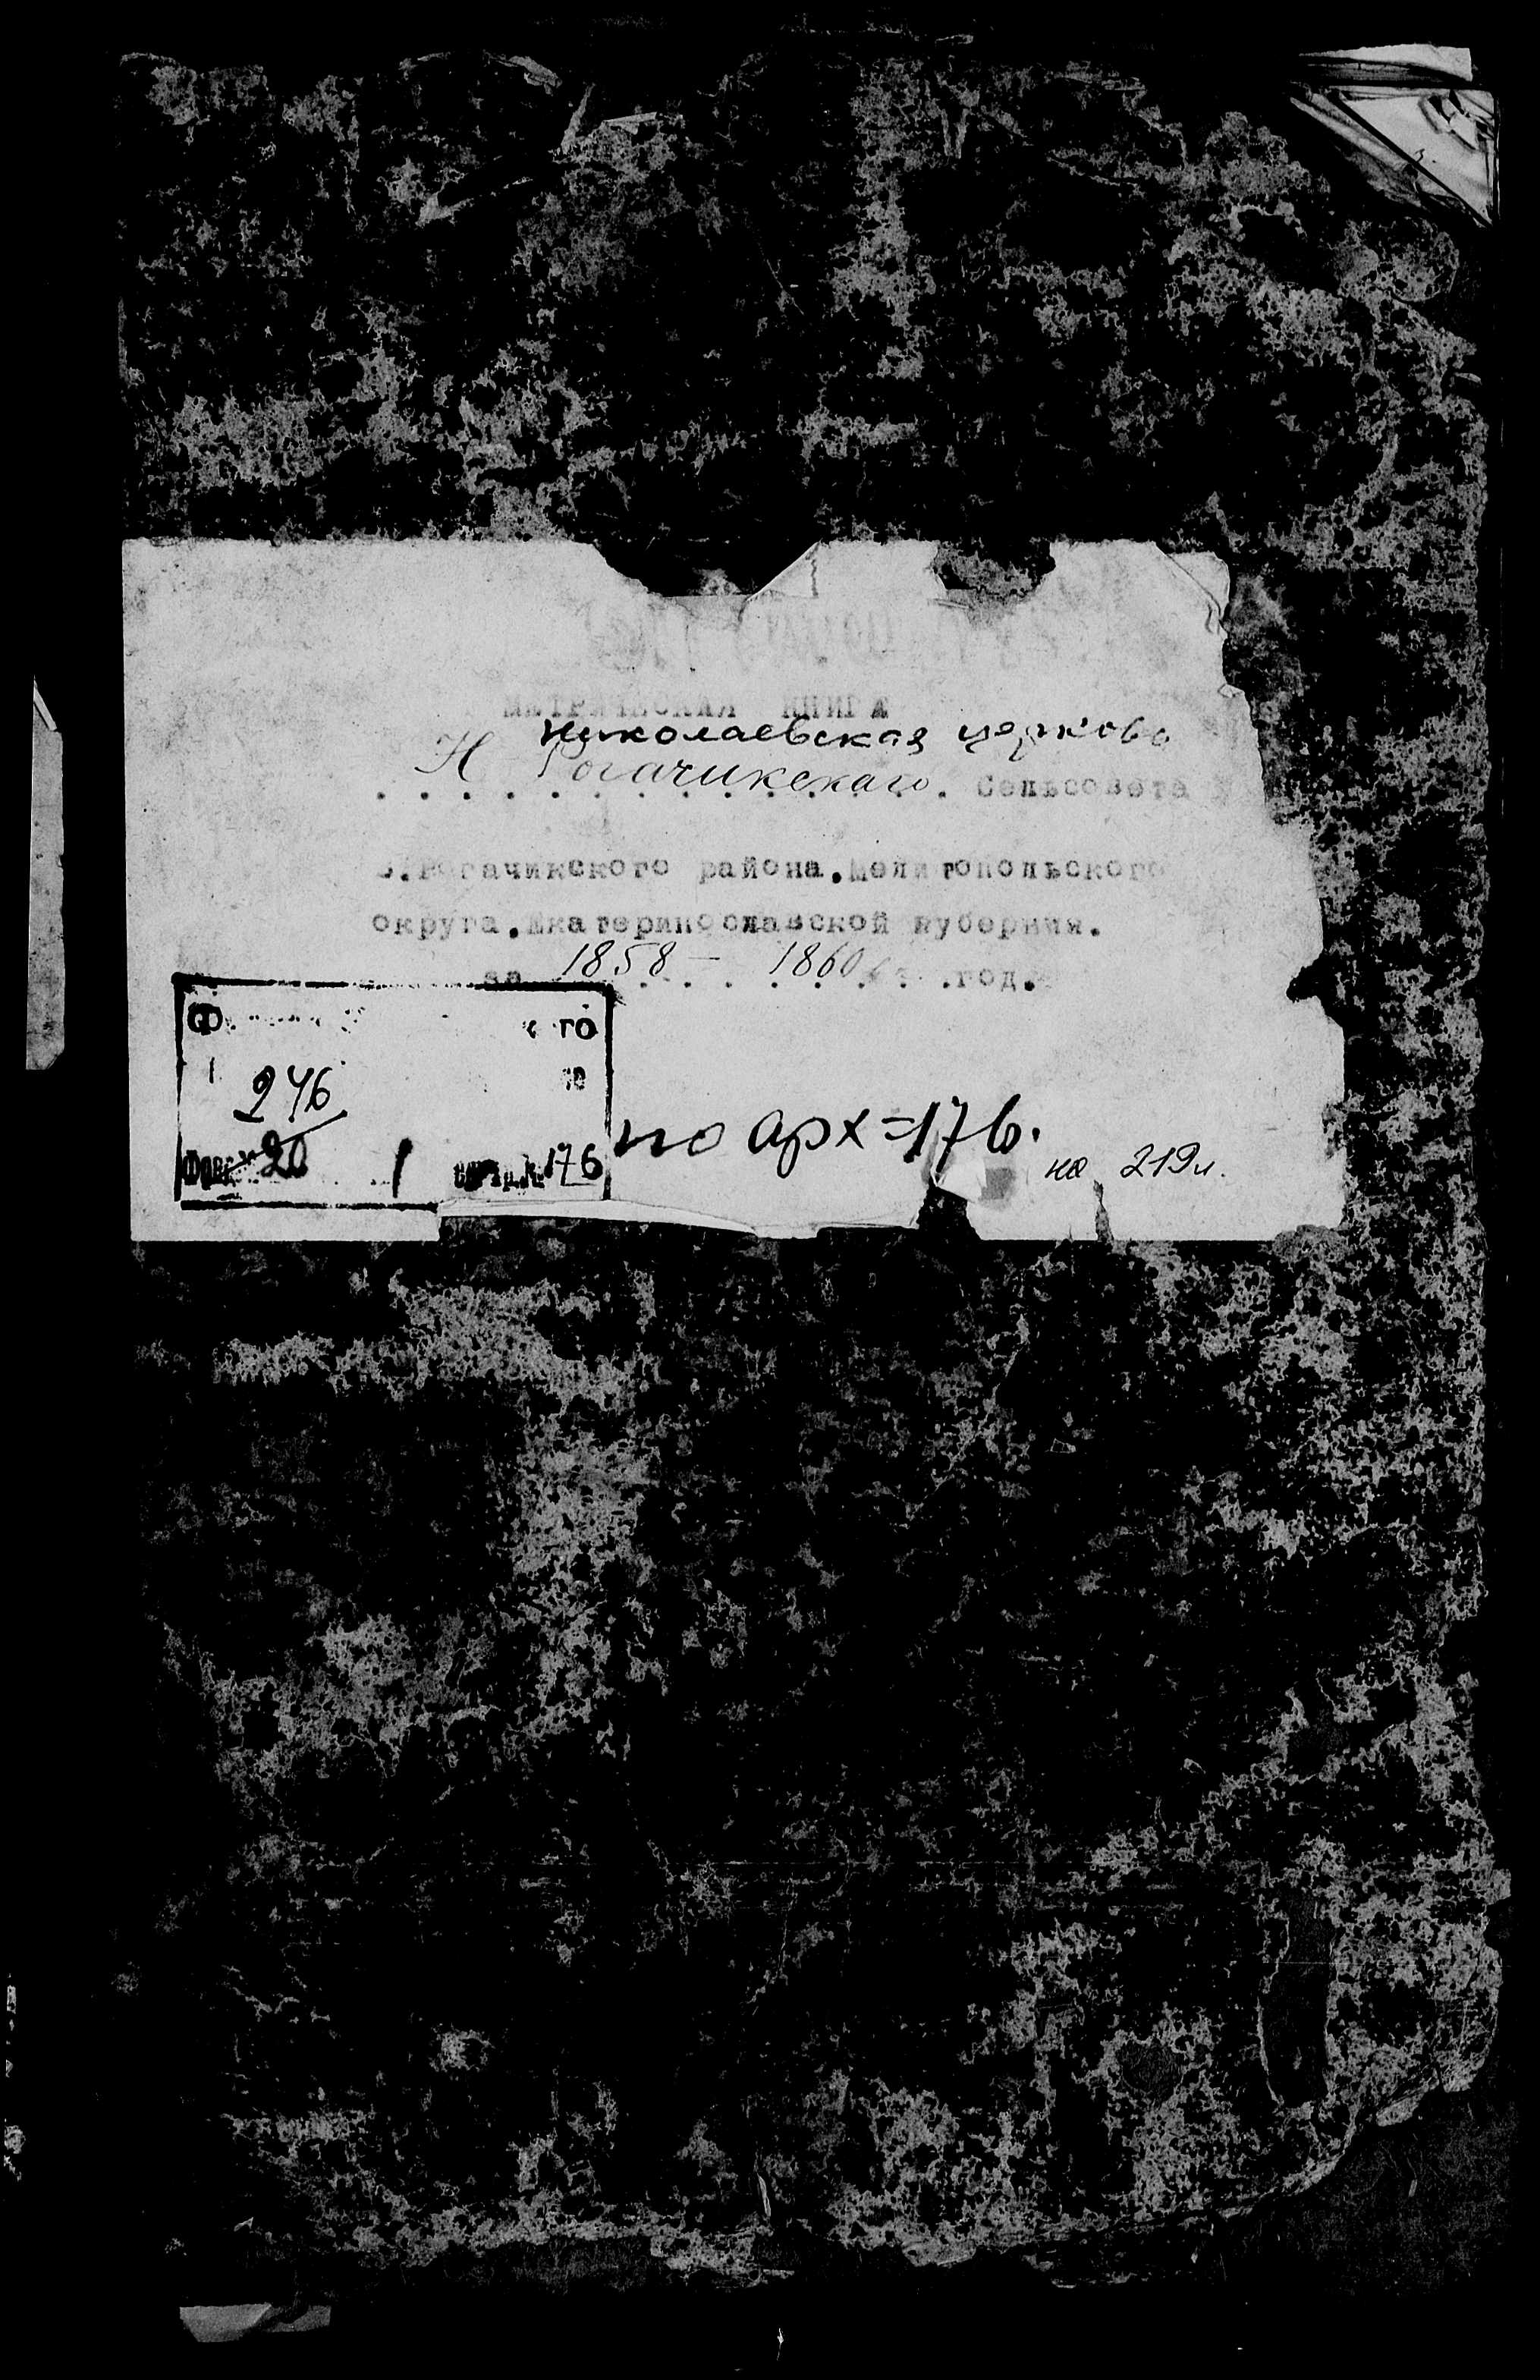 МЕТРИЧЕСКАЯ КНИГА
Николаевская церковь
Н Рогачикскаго. Сельсовета
.Рогачикского района.Мелитопольского
округа.Екатеринославской губернии.
за 1858 – 1860 год.
Ф го
246
20 1 176
по арх=176.
на 219 л.